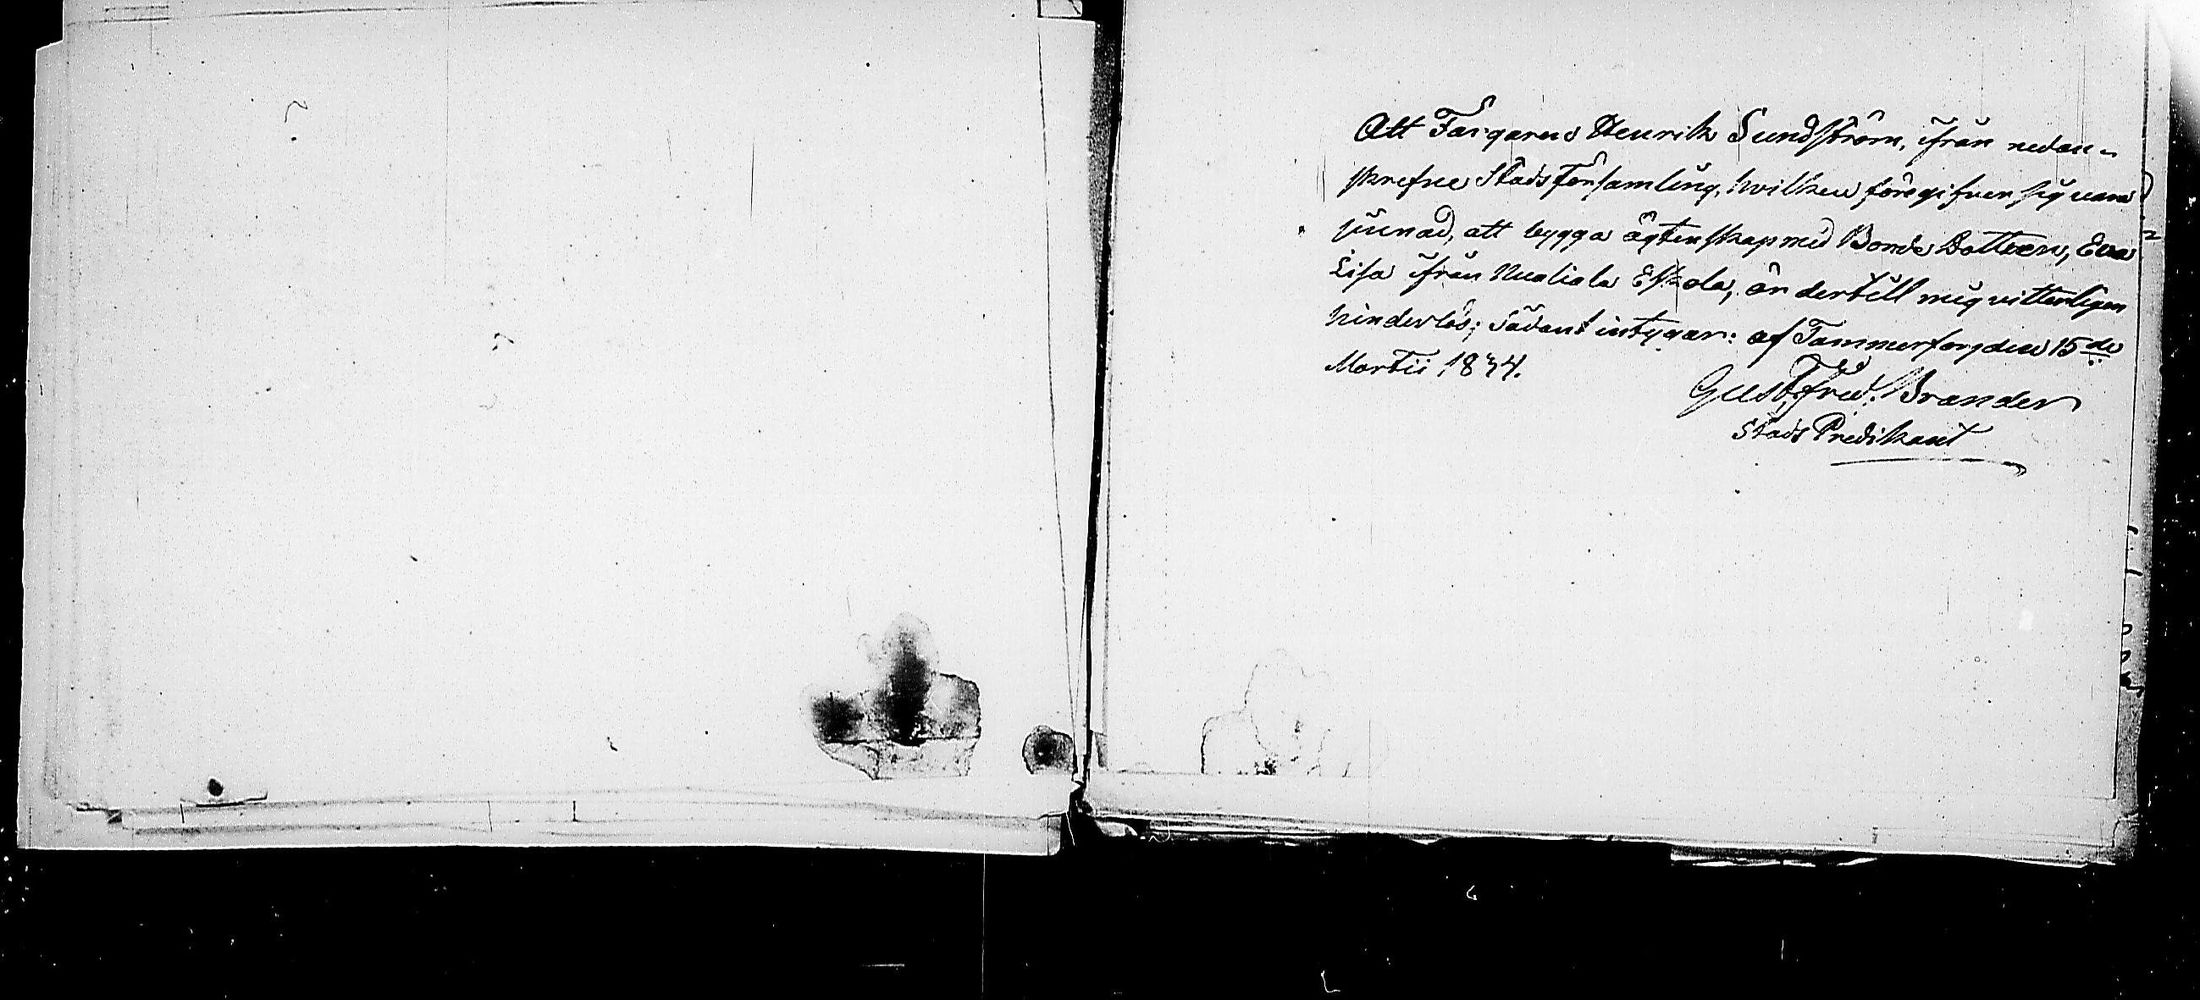 Att Färgaren Henrik Sundström, ifrån nedan-
skrefne Stads Församling, hvilken föregifver sig vara
sinnad, att bygga ägtenskap med Bonde Dottren, Eva
Lisa ifrån Kualiala Eskola, är dertill mig vitterligen
hinderlös; Sådant intygar: af Tammerfors den 15de
Martii 1834.
Gust. Fred. Brander
Stads Predikant